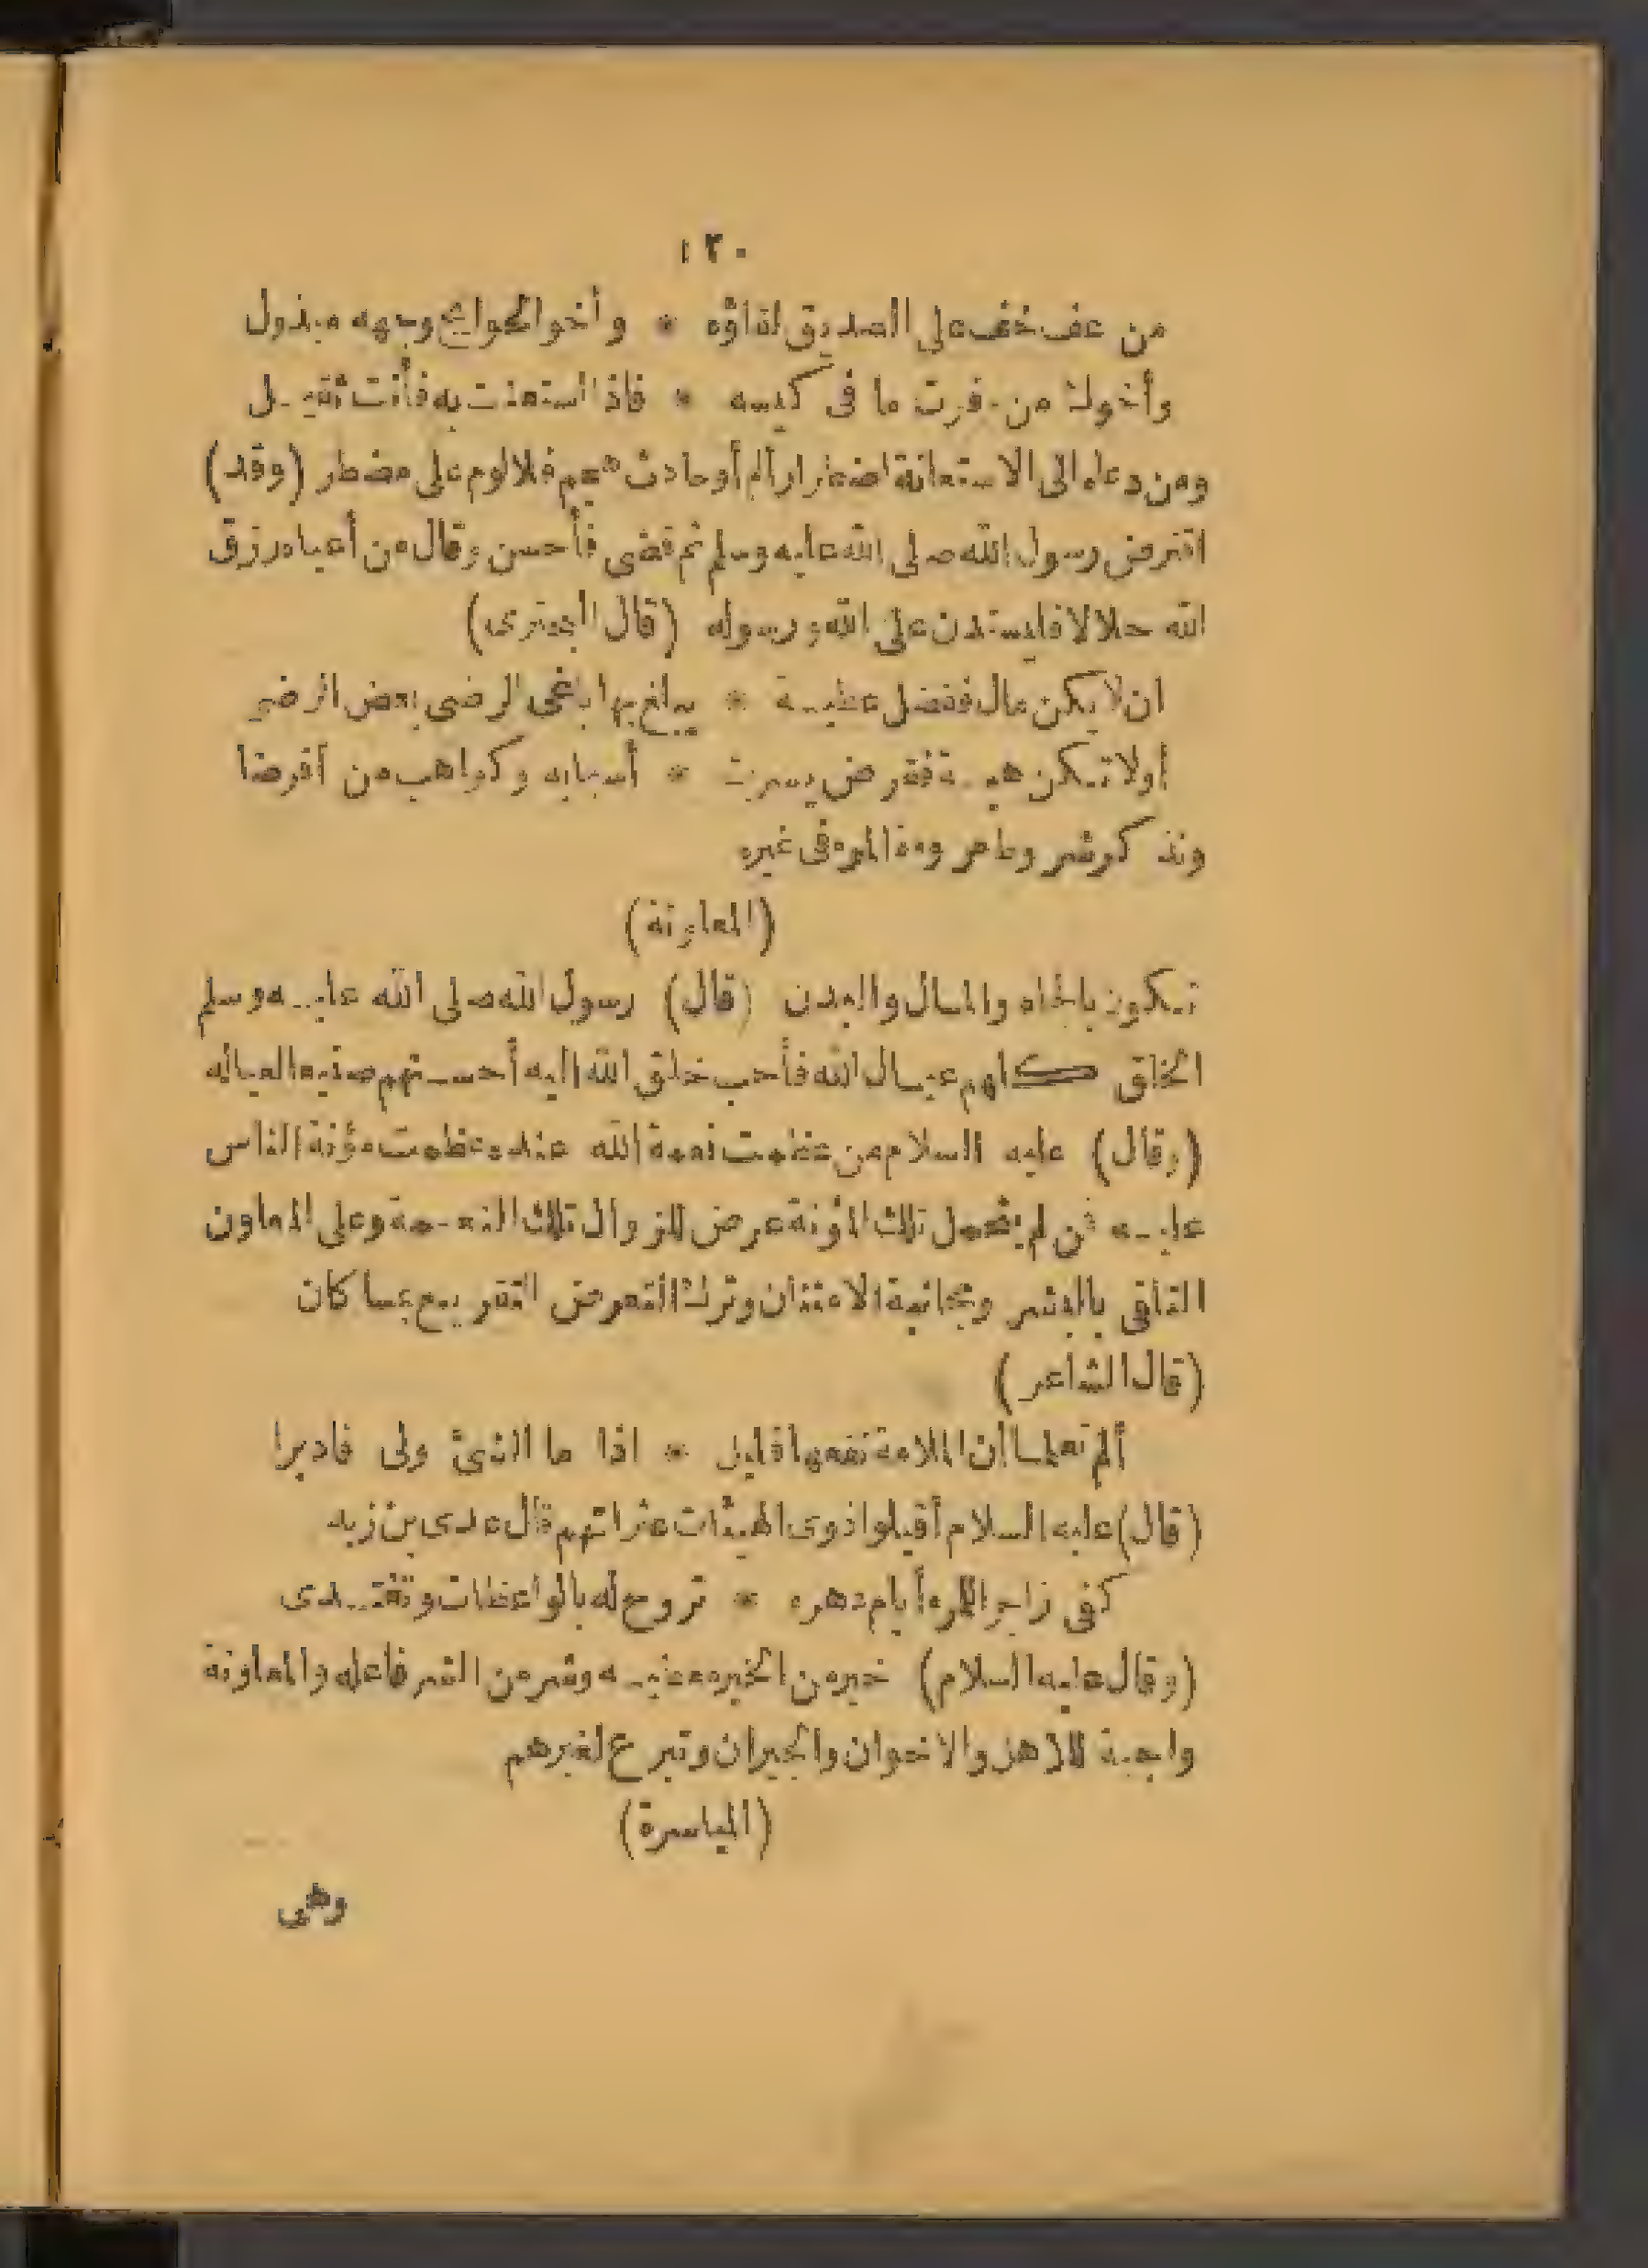 ١٢٠
من عف خف على الصديق لقاؤه * وأخو الحوائج وجهه مبذول
وأخوك من وفرت ما فى كيسه * فاذا استعنت به فأنت ثقيل
ومن دعاه الى الاستعانة اضطرار ألم أو حادث هجم فلا لوم على مضطر (وقد)
اقترض رسول الله صلى الله عليه وسلم ثم قضى فأحسن وقال من أعياه رزق
الله حلالا فليستدن على الله ورسوله (قال البحترى)
ان لا يكن مال ففضل عطية * يبلغ بها باغى الرضى بعض الرضى
أو لا تكن هبة فقرض يسرت * أسبابه وكواهب من أقرضا
ونذكر شروطا مروءة المرء فى غيره
(المعاونة)
تكون بالجاه والمال والبدن (قال) رسول الله صلى الله عليه وسلم
الخلق كلهم عيال الله فأحب خلق الله اليه أحسنهم صنيعا لعياله
(وقال) عليه السلام من عظمت نعمة الله عنده عظمت مؤنة الناس
عليه فن لم يتحمل تلك المؤنة عرض للزوال تلك النعمة وعلى المعاون
التلقى بالبشر ومجانبة الامتنان وترك التعرض التقريع بما كان
(قال الشاعر)
ألم تعلما أن الملامة نفعها قليل * اذا ما الشئ ولى فادبرا
(قال) عليه السلام أقيلوا ذوى الهيئات عثراتهم قال عدى بن زيد
كفى زاجرا للمرء أيام دهره * تروح له بالواعظات وتغتدى
(وقال عليه السلام) خير من الخير معطيه وشر من الشر فاعله والمعاونة
واجبة للاهل والاخوان والجيران وتبرع لغيرهم
(المياسرة)
وهى